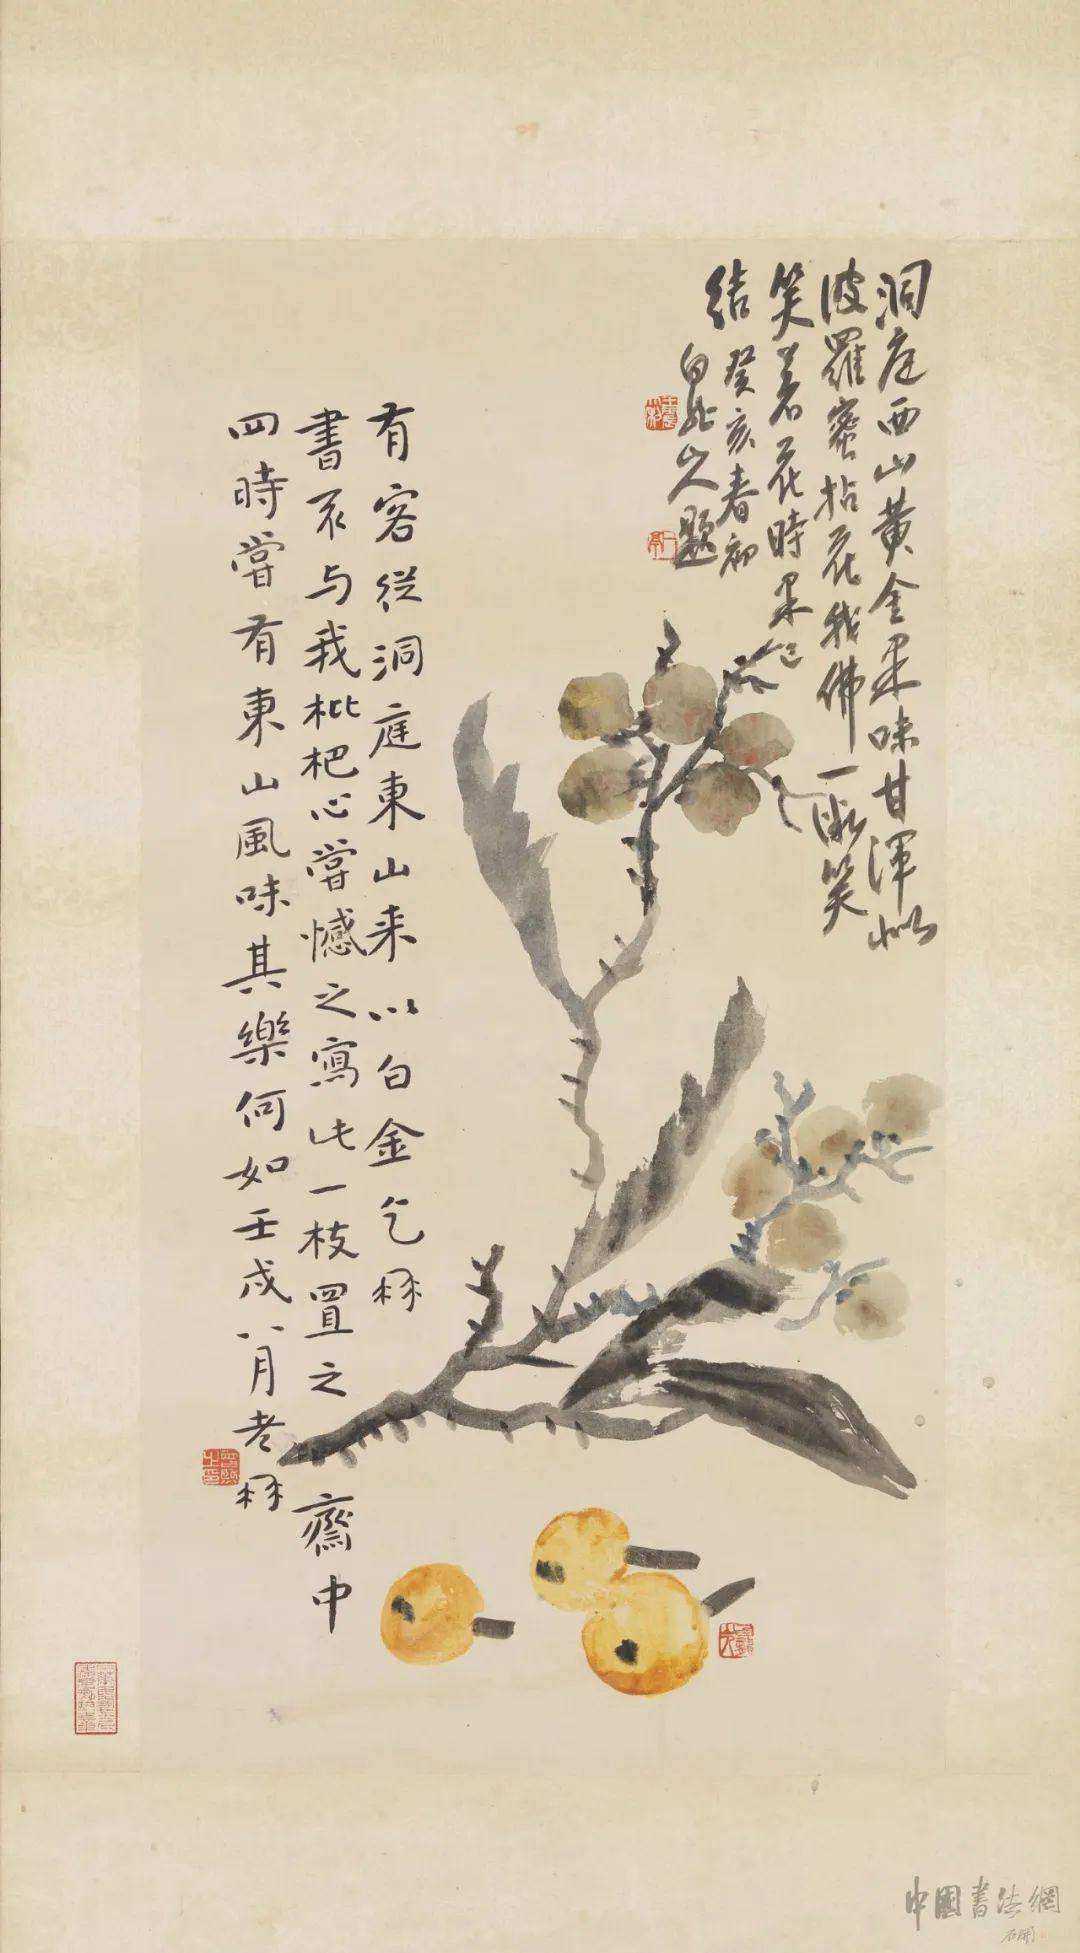 洞庭西山黃金果味甘渾似
波羅蜜拈花我佛一微笑
笑著花時果已
結 癸亥春初
白龍山人題
有客從洞庭東山來以白金乞髯
書不與我枇杷心嘗憾之寫此一枝置之齋中
四時嘗有東山風味其樂何如壬戌八月老髯
中國書法網